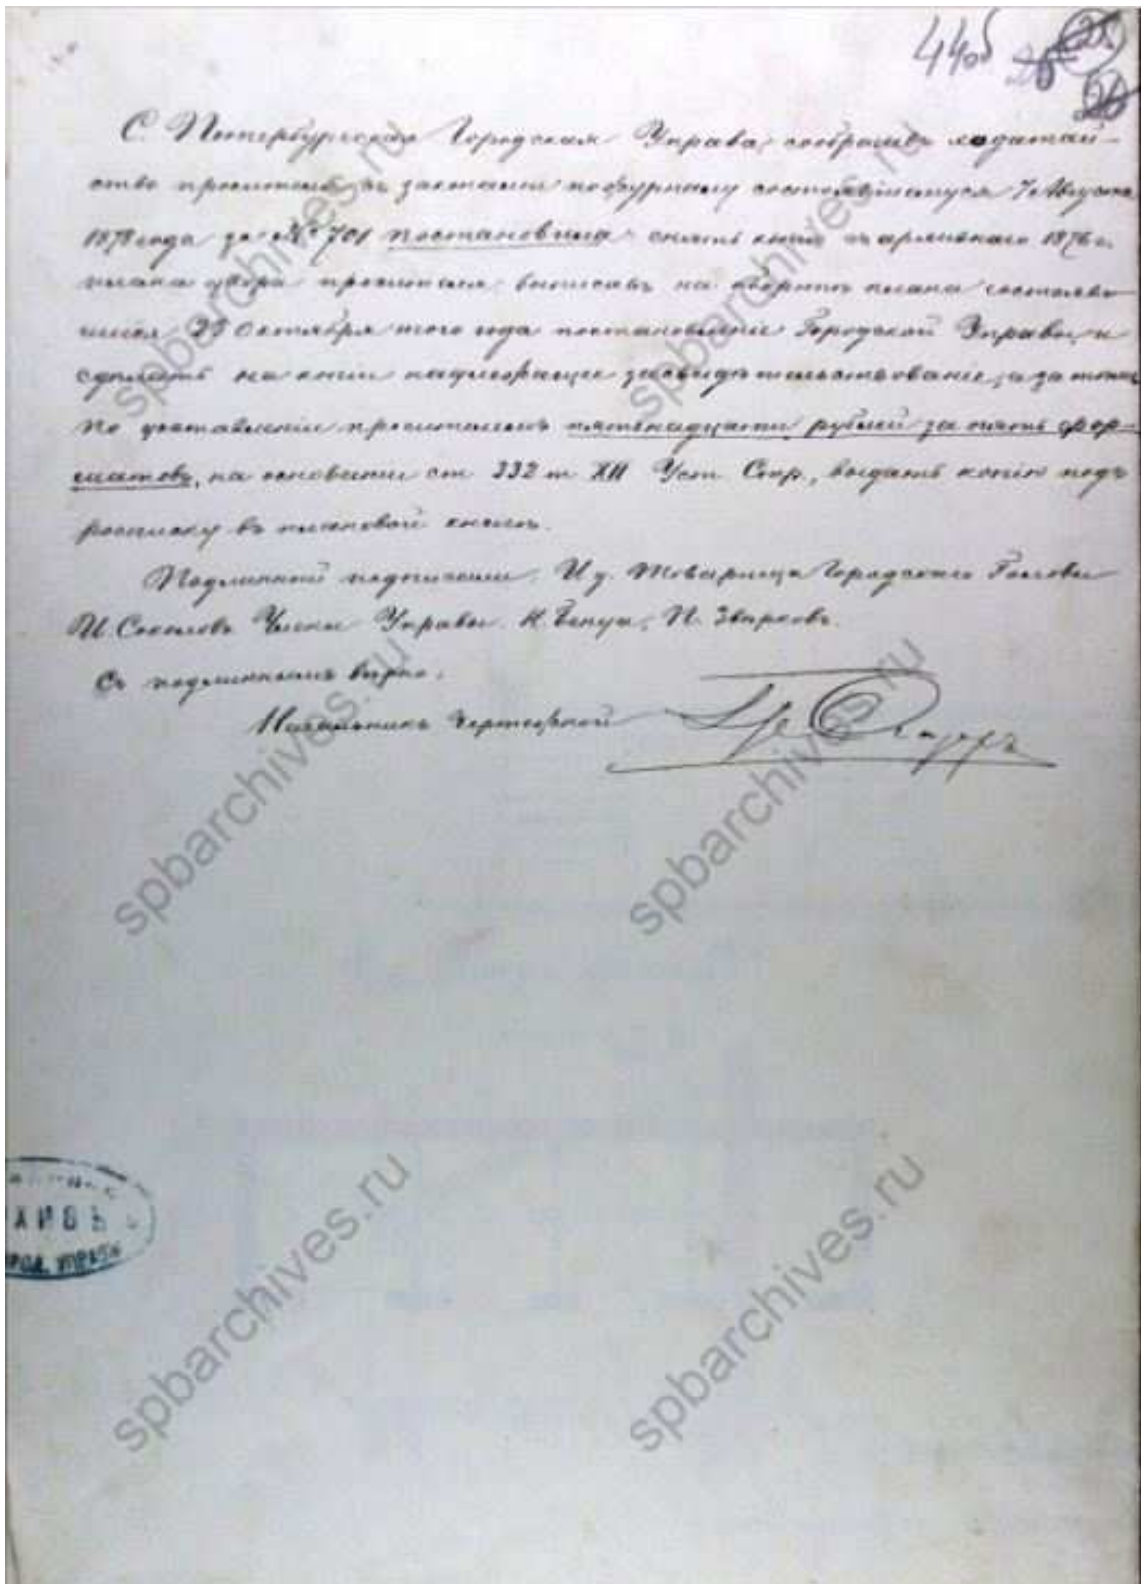 44об
26
25
26
С. Петербургская Городская Управа, сообразивъ ходатай-
ство просителя съ законами по журналу состоявшемуся 7 Августа
1878 года за № 701 постановила снять копію съ архивнаго 1876 г.
плана двора просителя, выписавъ на оборотъ плана состояв-
шееся 25 Октября того года постановленіе Городской Управы, и
сдѣлать на копіи надлежащее засвидѣтельствованіе, а за тѣмъ
по доставленіи просителемъ пятьнадцати рублей за пять фор-
матовъ, на основаніи ст. 332 т. XII Уст. Стр., выдать копію подъ
росписку въ плановой книгѣ.
Подлинной подписали: И. д. Товарища Городскаго Головы
И. Соколовъ Члены Управы. Н. Бенуа, П. Звѣрковъ.
Съ подлиннымъ вѣрно:
Начальникъ Чертежной
ХИВЪ
ОРОД. УПРАВ
spbarchives.ru
spbarchives.ru
spbarchives.ru
spbarchives.ru
spbarchives.ru
spbarchives.ru